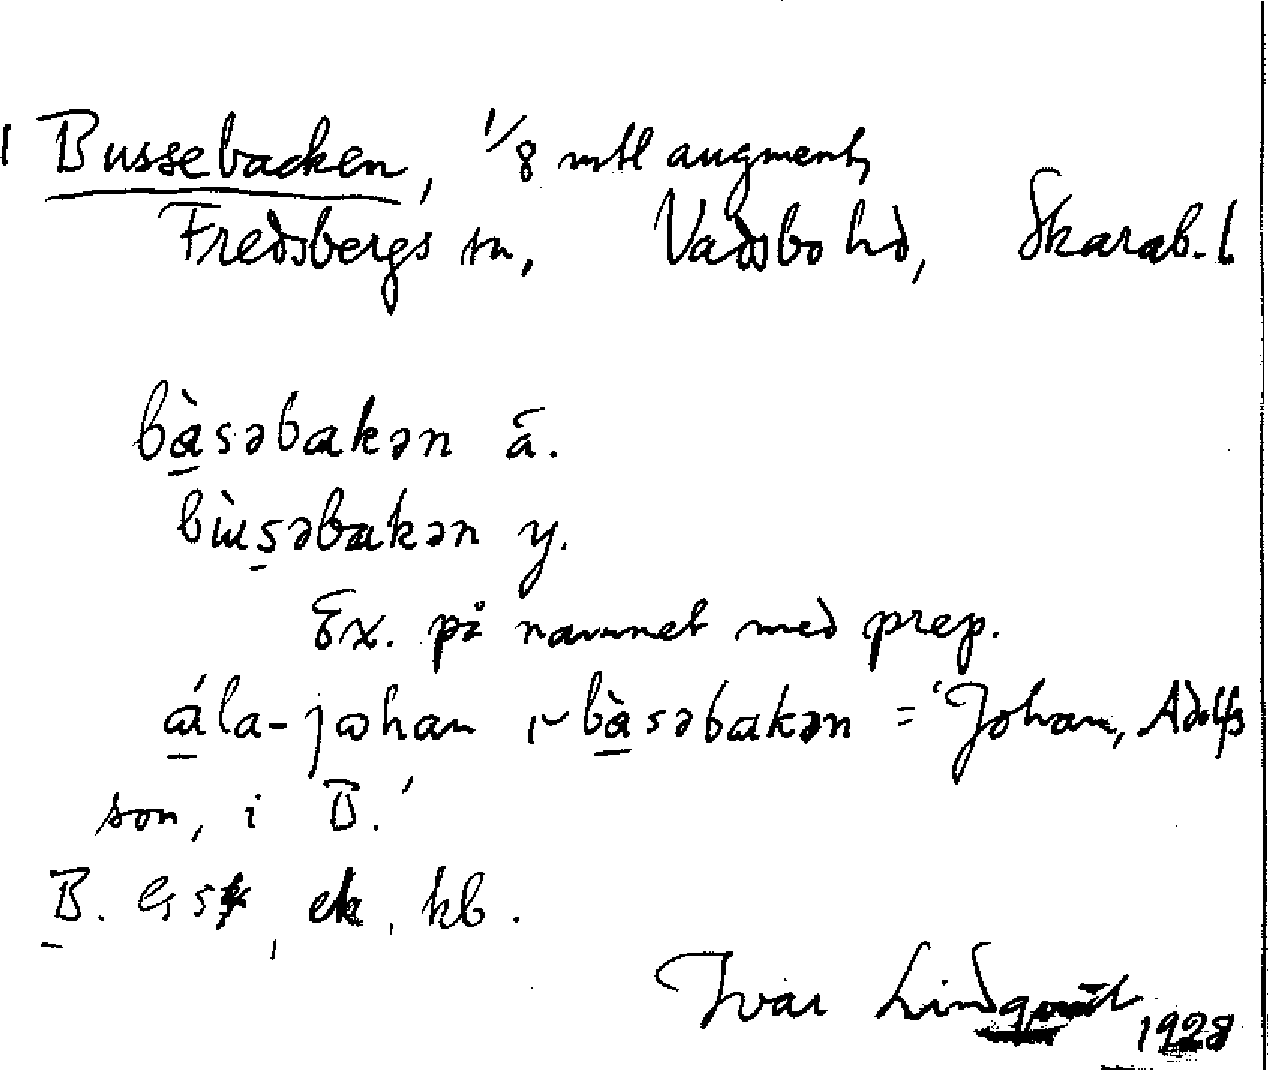 1 Bussebacken, 1/8 mtl augment,
Fredsbergs sn, Vadsbo hd, Skarab. l
bɑ̱̀səbakən ä.
bùs̱əbakən y.
Ex. på namnet med prep.
á̱la-johan i bɑ̱̀səbakən = 'Johan, Adolfs
son, i B.'
B. GSK, ek, kb.
Ivar Lindquist 1928